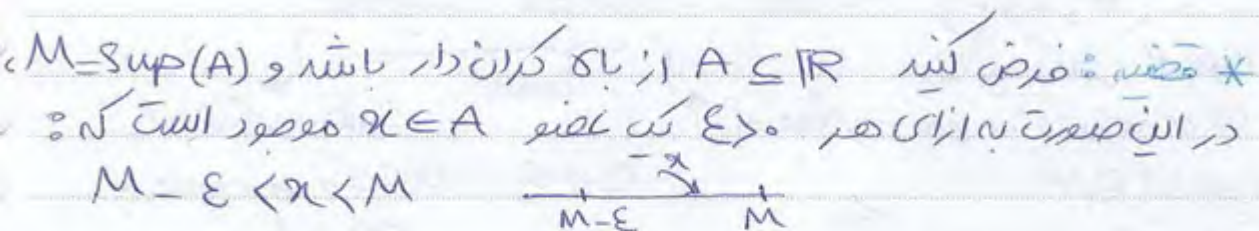 * قضیه: فرض کنید A ⊆ ℝ از بالا کران دار باشد و M=Sup(A)،
در این صورت به ازای هر ε>0 یک عضو x∈A موجود است که:
M-ε<x<M x M-ε M